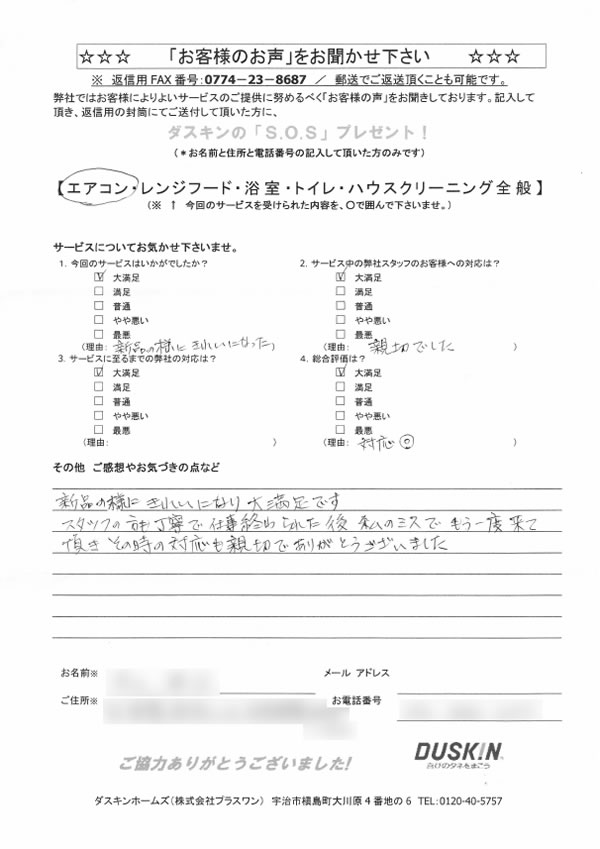 ☆☆☆ 「お客様のお声」をお聞かせ下さい ☆☆☆
※ 返信用FAX番号:0774-23-8687 / 郵送でご返送頂くことも可能です。
弊社ではお客様によりよいサービスのご提供に努めるべく「お客様の声」をお聞きしております。記入して
頂き、返信用の封筒にてご送付して頂いた方に、
ダスキンの「S.O.S」プレゼント!
(*お名前と住所と電話番号の記入して頂いた方のみです)
【エアコン・レンジフード・浴室・トイレ・ハウスクリーニング全般】
(※ ↑ 今回のサービスを受けられた内容を、〇で囲んで下さいませ。)
サービスについてお気かせ下さいませ。
1. 今回のサービスはいかがでしたか?
☑ 大満足
□ 満足
□ 普通
□ やや悪い
□ 最悪
(理由: 新品の様にきれいになった)
2. サービス中の弊社スタッフのお客様への対応は?
☑ 大満足
□ 満足
□ 普通
□ やや悪い
□ 最悪
(理由: 親切でした )
3. サービスに至るまでの弊社の対応は?
☑ 大満足
□ 満足
□ 普通
□ やや悪い
□ 最悪
(理由: )
4. 総合評価は?
☑ 大満足
□ 満足
□ 普通
□ やや悪い
□ 最悪
(理由: 対応◎ )
その他 ご感想やお気づきの点など
新品の様にきれいになり大満足です
スタッフの方も丁寧で仕事終わられた後私のミスでもう一度来て
頂きその時の対応も親切でありがとうございました
お名前※
メール アドレス
ご住所※
お電話番号
ご協力ありがとうございました!
DUSKIN
喜びのタネをまこう
ダスキンホームズ(株式会社プラスワン) 宇治市槇島町大川原4番地の6 TEL:0120-40-5757